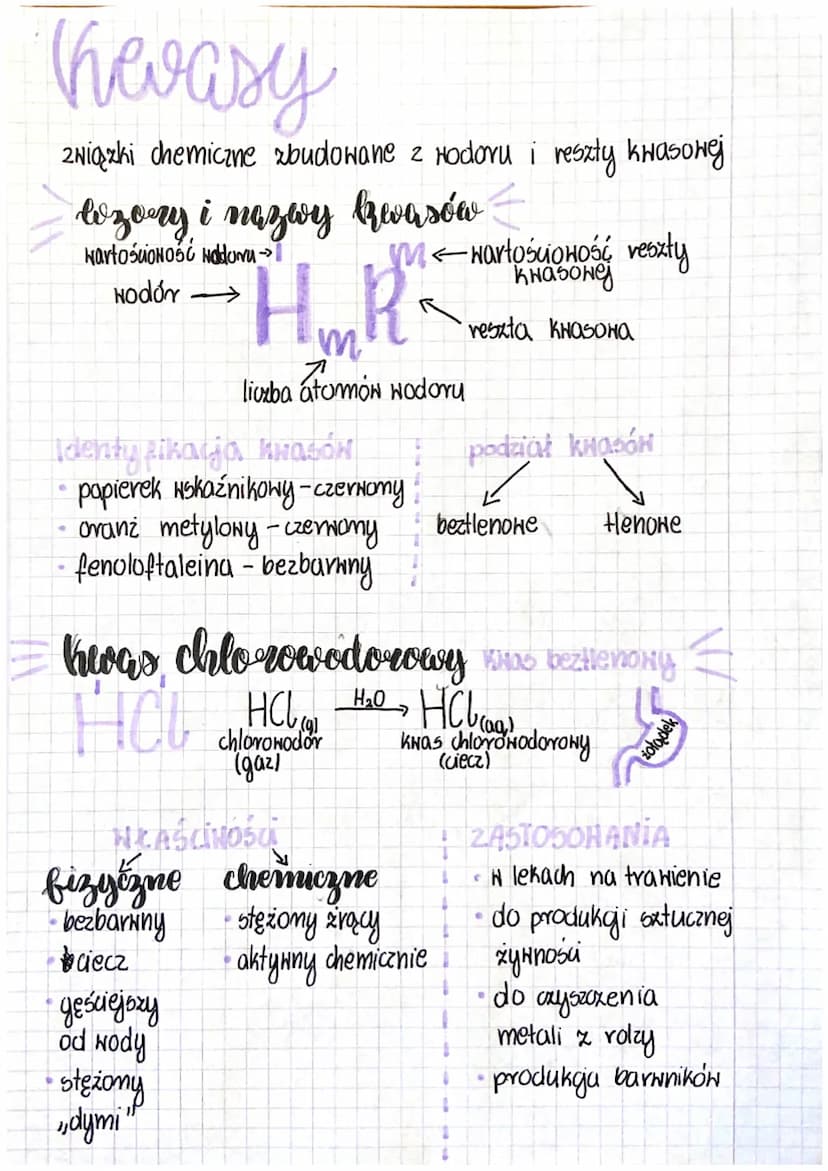 Kwasy
związki chemiczne zbudowane z wodoru i reszty kwasowej
wzory i nazwy kwasów
wartościowość wodoru → I
m ← wartościowość reszty
kwasowej
wodór → HmR
reszta kwasowa
liczba atomów wodoru
identyfikacja kwasów
• papierek wskaźnikowy - czerwony
• oranż metylowy - czerwony
• fenoloftaleina - bezbarwny
podział kwasów
beztlenowe tlenowe
kwas chlorowodorowy kwas beztlenowy
I I
HCl
HCl(g) H₂O → HCl(aq)
chlorowodór kwas chlorowodorowy
(gaz) (ciecz)
żołądek
WŁAŚCIWOŚCI
fizyczne
• bezbarwny
• ciecz
• gęściejszy
od wody
• stężony
„dymi"
chemiczne
• stężony żrący
• aktywny chemicznie
ZASTOSOWANIA
• w lekach na trawienie
• do produkcji sztucznej
żywności
• do czyszczenia
metali z rdzy
• produkcja barwników